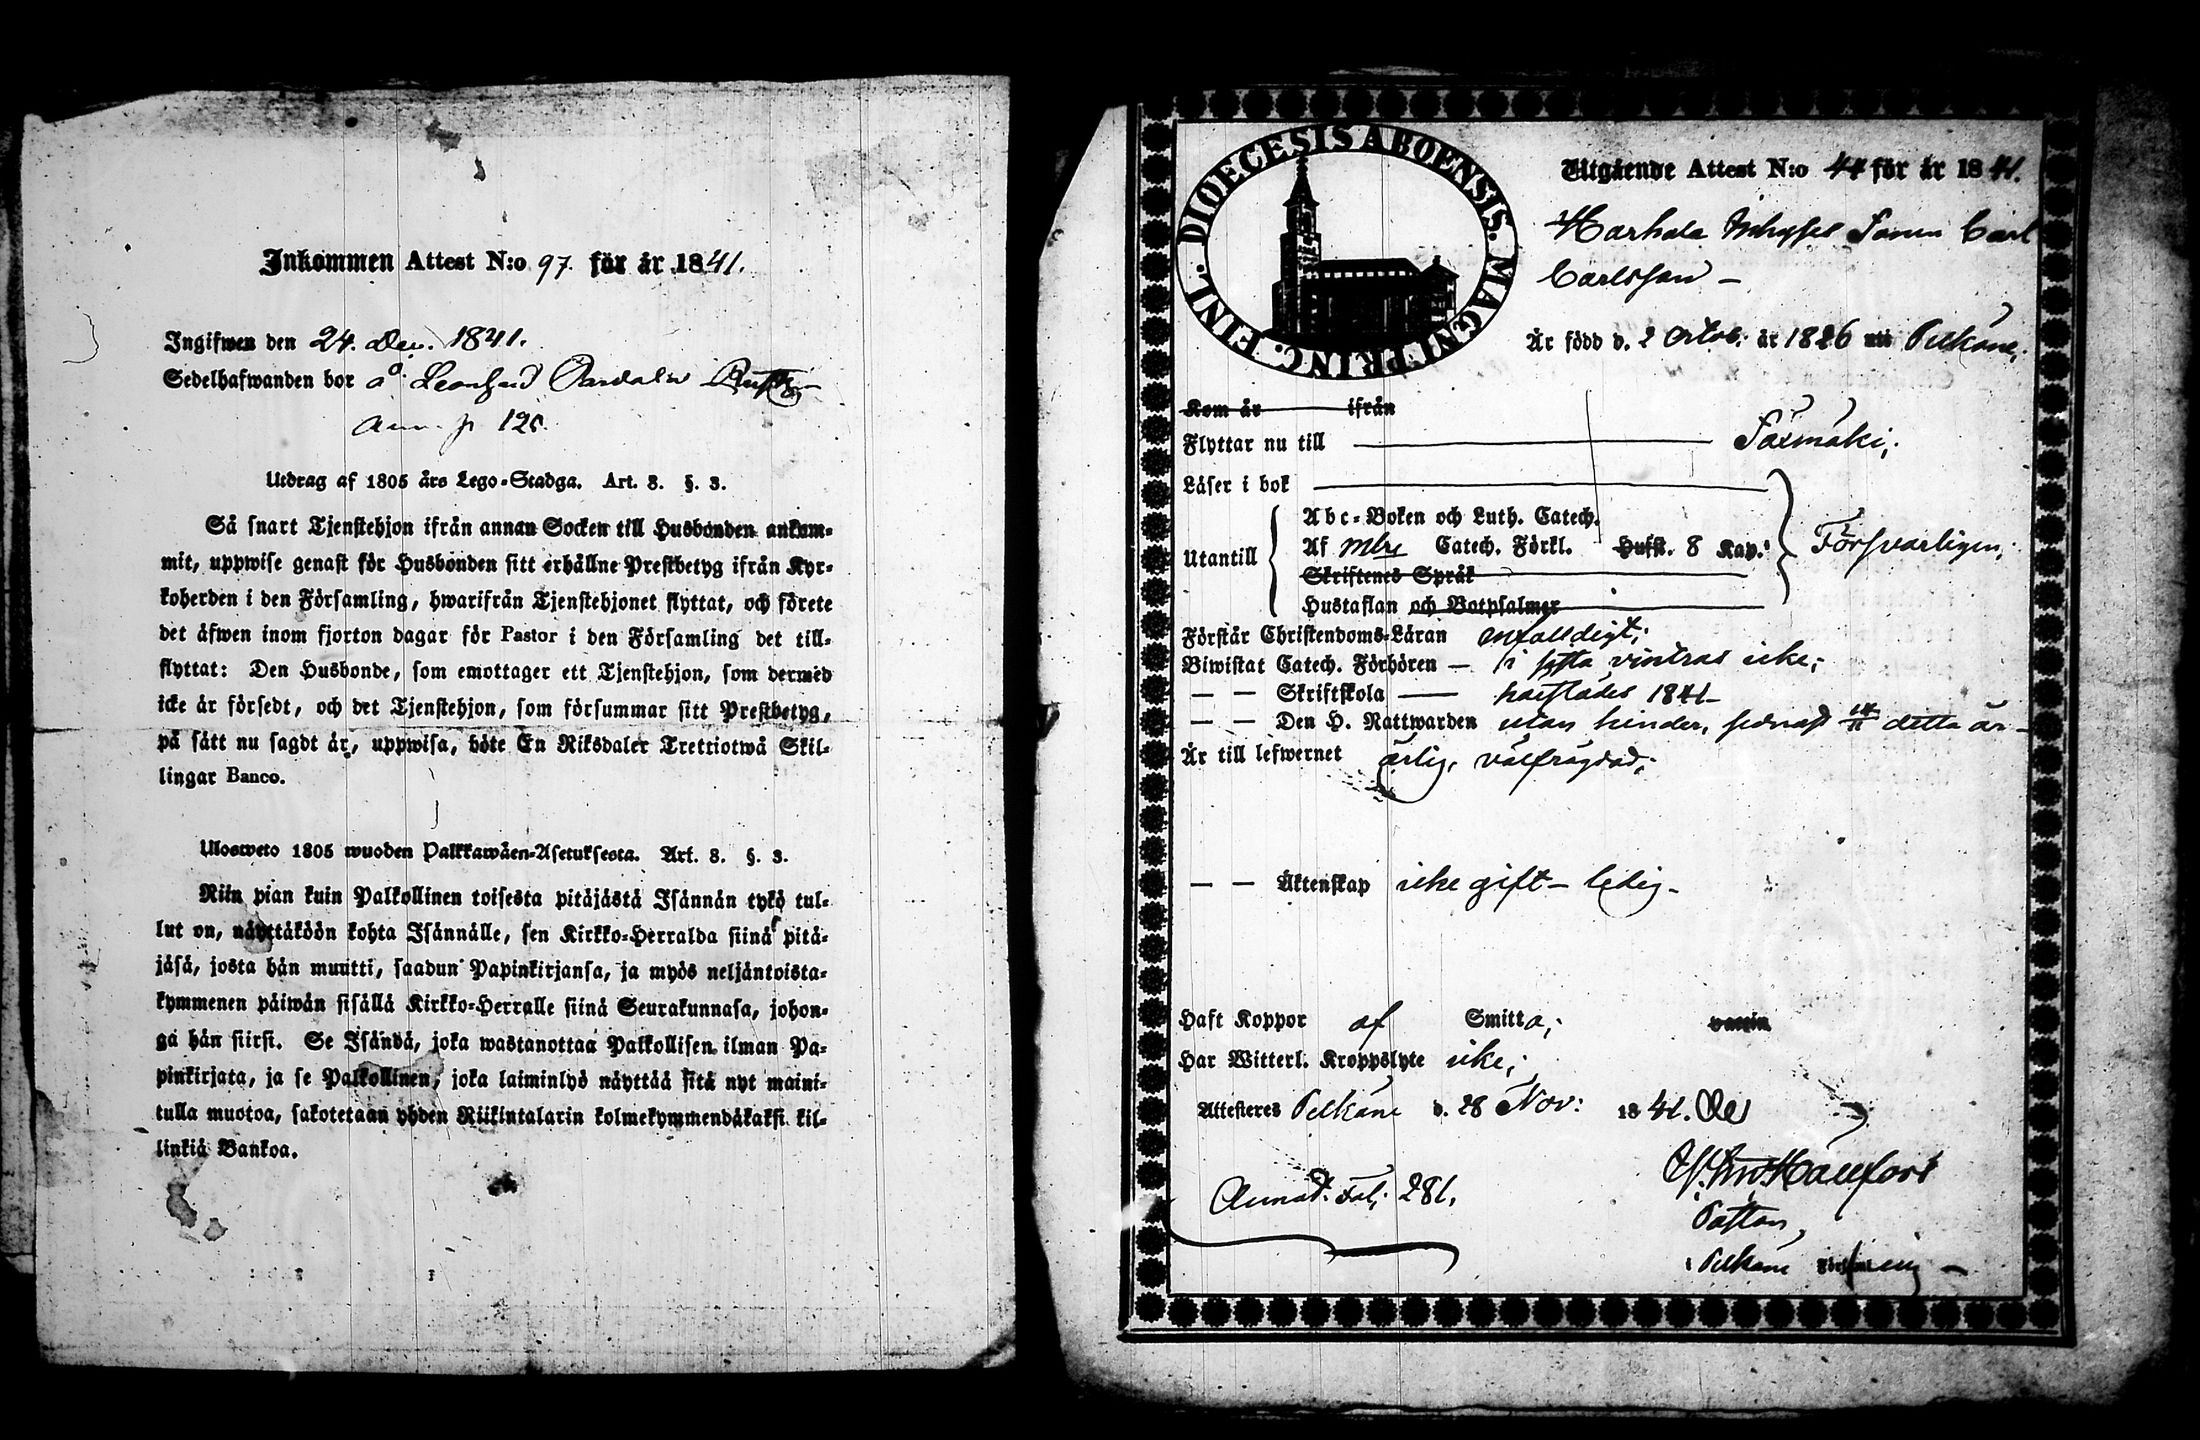 Inkommen Attest N:o 97. för år 1841.
Ingifwen den 24. Dec. 1841.
Sedelhafwanden bor å Leonhard
Ann. p 120.
Utdrag af 1805 års Lego-Stadga. Art. 8. §. 3.
Så snart Tjenstehjon ifrån annan Socken till Husbonden ankom-
mit, uppwise genast för Husbonden sitt erhållne Prestbetyg ifrån Kyr-
koherden i den Församling, hwarifrån Tjenstehjonet flyttat, och förete
det äfwen inom fjorton dagar för Pastor i den Församling det till-
flyttat: Den Husbonde, som emottager ett Tjenstehjon, som dermed
icke är försedt, och det Tjenstehjon, som försummar sitt Prestbetyg,
på sätt nu sagdt är, uppwisa, böte En Riksdaler Trettiotwå Skil-
lingar Banco.
Ulosweto 1805 wuoden Palkkawäen-Asetuksesta. Art. 8. §. 3.
Niin pian kuin Palkollinen toisesta pitäjästä Isännän tykö tul-
lut on, näyttäköön kohta Isännälle, sen Kirkko-Herralda siinä pitä-
jäsä, josta hän muutti, saadun Papinkirjansa, ja myös neljäntoista-
kymmenen päiwän sisällä Kirkko-Herralle siinä Seurakunnasa, johon-
ga hän siirsi. Se Isändä, joka wastanottaa Palkollisen ilman Pa-
pinkirjata, ja se Palkollinen, joka laiminlyö näyttää sitä nyt maini-
tulla muotoa, sakotetaan yhden Riikintalarin kolmekymmendäkaksi kil-
linkiä Bankoa.
DIOECESIS ABOENSIS. MAGNI PRINC. FINL.
Utgående Attest N:o 44 för år 1841.
Harhala Inhyses Sonen Carl
Carlsson –
Är född d. 2 Octob. år 1826 uti Pelkäne;
Kom år ifrån
Flyttar nu till Säxmäki;
Läser i bok
Abc-Boken och Luth. Catech.
Utantill Af Catech. Förkl. Hufst. 8 Kap. Försvarligen;
Skriftenes Språk
Hustaflan och Botpsalmer
Förstår Christendoms-Läran enfalldigt;
Biwistat Catech. Förhören – i sista vintras icke;
– – Skriftskola – 1841 –
– – Den H. Nattwarden utan hinder, sednast 14/11 detta år –
Är till lefwernet ärlig, välfrägdad;
– – Äktenskap icke gift – ledig –
Haft Koppor af Smitta; vaccin
Har Witterl. Kroppslyte icke;
Attesteres Pelkäne d. 28 Nov: 1841.
Annot. Fol; 281.
Pastor,
i Pelkäne Församling –